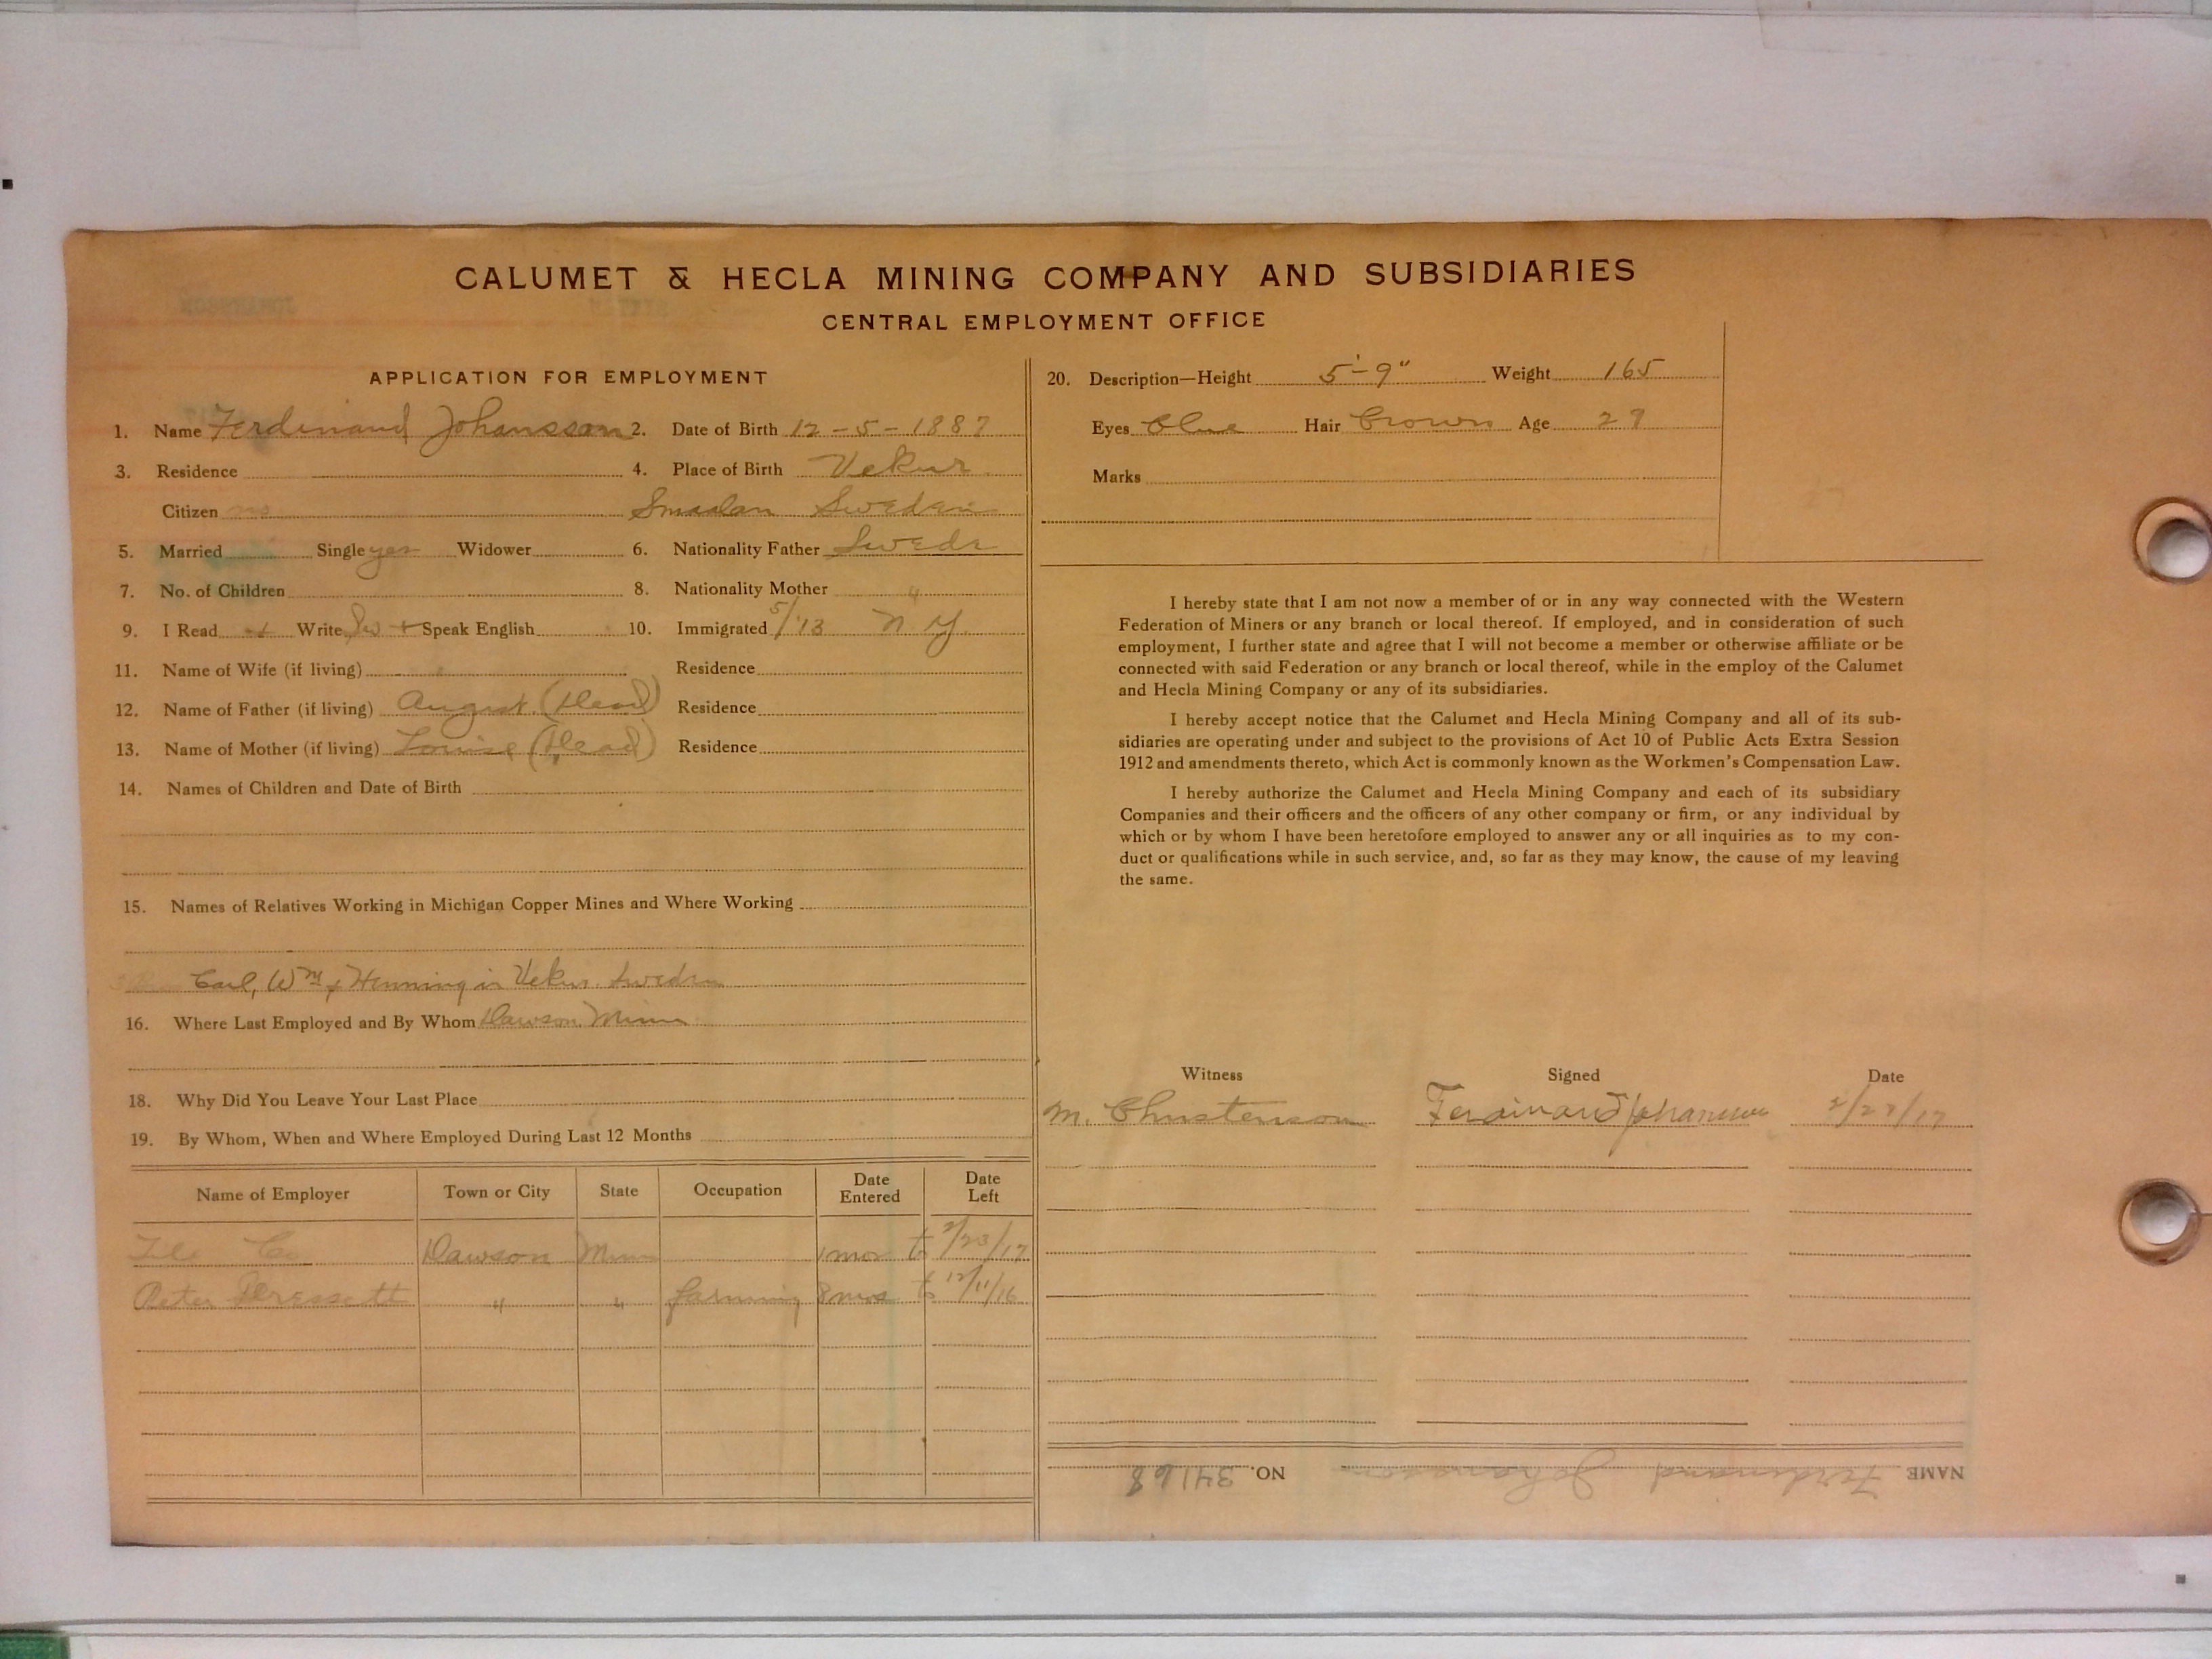 CALUMET & HECLA MINING COMPANY AND SUBSIDIARIES
CENTRAL EMPLOYMENT OFFICE
APPLICATION FOR EMPLOYMENT
1. Name Ferdinand Johansson 2. Date of Birth 12-5-1887
3. Residence 4. Place of Birth Vekur
Citizen no Smaalan Sweden
5. Married Single yes Widower 6. Nationality Father Swede
7. No. of Children 8. Nationality Mother "
9. I Read + Write Sw + Speak English 10. Immigrated 5/'13 N Y.
11. Name of Wife (if living) Residence
12. Name of Father (if living) August (Dead) Residence
13. Name of Mother (if living) Louise (Dead) Residence
14. Names of Children and Date of Birth
15. Names of Relatives Working in Michigan Copper Mines and Where Working
Carl, Wm + Henning in Vekur Sweden
16. Where Last Employed and By Whom Dawson, Minn
18. Why Did You Leave Your Last Place
19. By Whom, When and Where Employed During Last 12 Months
Name of Employer Town or City State Occupation Date Entered Date Left
Co Dawson Minn 1 mos to 2/23/17
Peter " " farming 8 mos to 12/11/16
20. Description—Height 5'-9" Weight 165
Eyes Blue Hair Brown Age 29
Marks
I hereby state that I am not now a member of or in any way connected with the Western
Federation of Miners or any branch or local thereof. If employed, and in consideration of such
employment, I further state and agree that I will not become a member or otherwise affiliate or be
connected with said Federation or any branch or local thereof, while in the employ of the Calumet
and Hecla Mining Company or any of its subsidiaries.
I hereby accept notice that the Calumet and Hecla Mining Company and all of its sub-
sidiaries are operating under and subject to the provisions of Act 10 of Public Acts Extra Session
1912 and amendments thereto, which Act is commonly known as the Workmen's Compensation Law.
I hereby authorize the Calumet and Hecla Mining Company and each of its subsidiary
Companies and their officers and the officers of any other company or firm, or any individual by
which or by whom I have been heretofore employed to answer any or all inquiries as to my con-
duct or qualifications while in such service, and, so far as they may know, the cause of my leaving
the same.
Witness Signed Date
M. Christenson Ferdinand Johansson 2/27/17
NAME Ferdinand Johansson NO. 34168